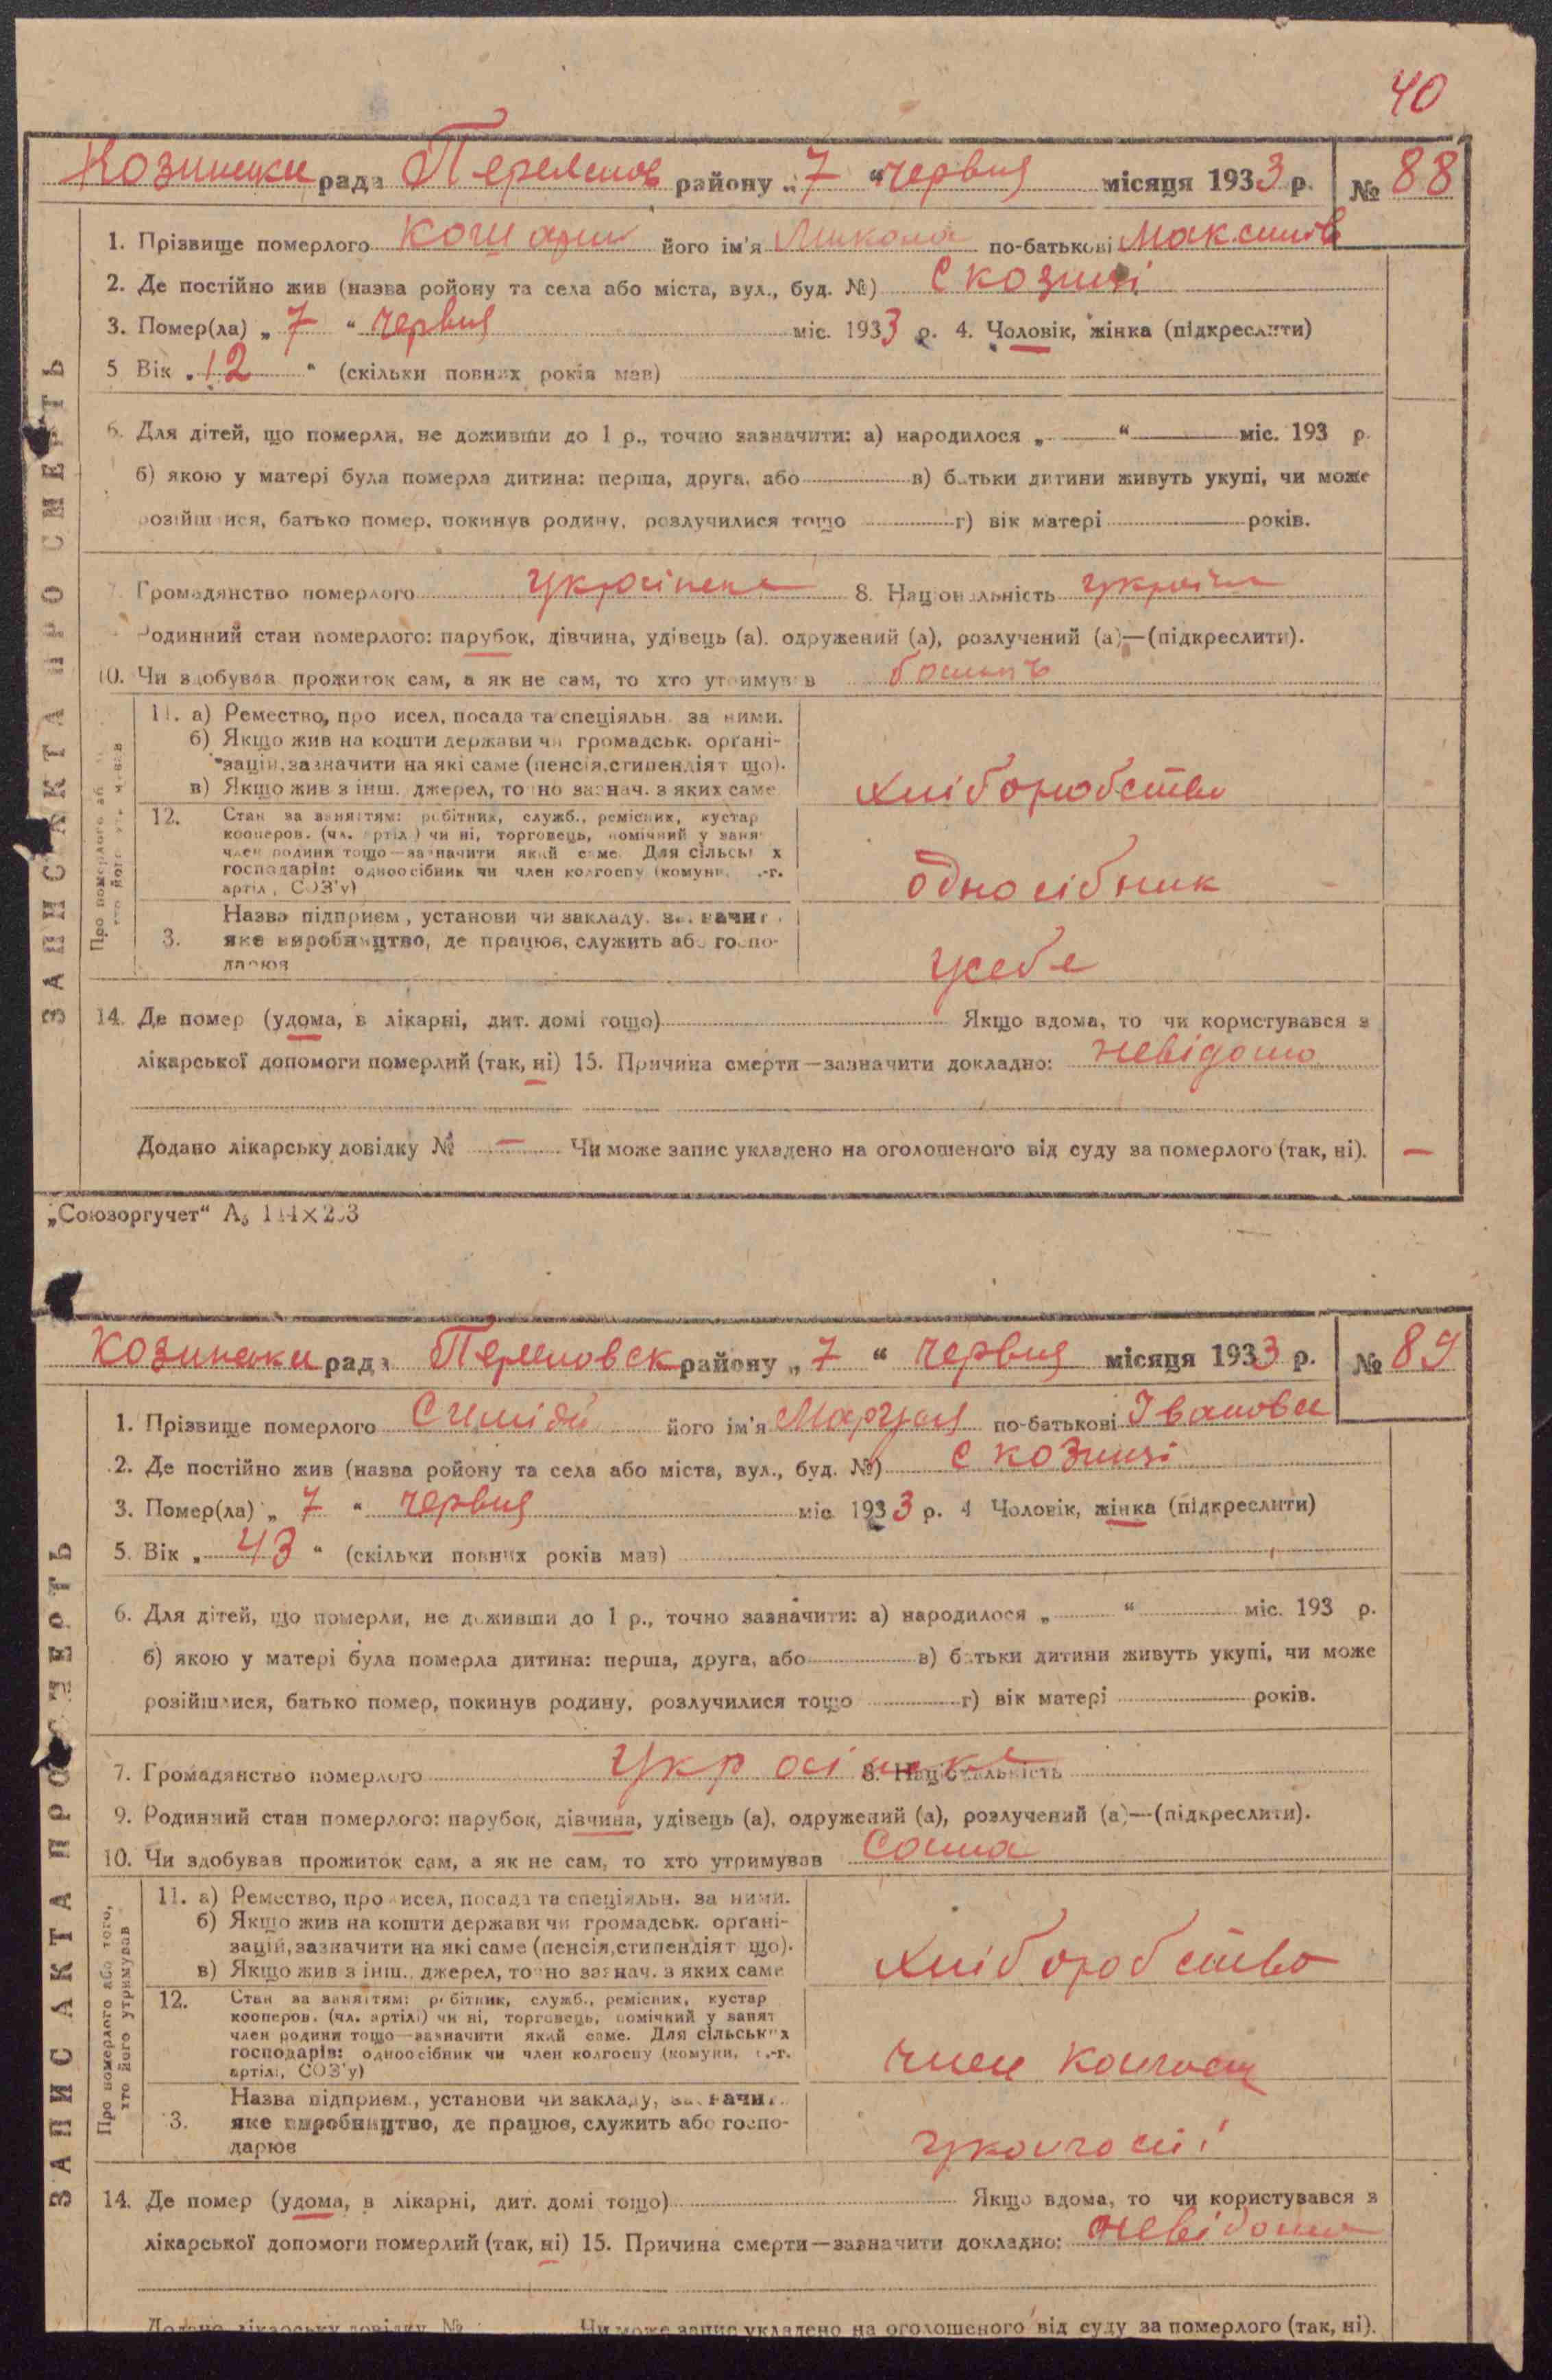 40
рада Перемов району „7“ червня місяця 1933 р. № 88
1. Прізвище померлого його ім'я Микола по-батькові Максимов
2. Де постійно жив (назва ройону та села або міста, вул., буд. №) С Козинці
3. Помер(ла) „7“ червня міс. 1933 р. 4. Чоловік, жінка (підкреслити)
5 Вік „12“ (скільки повних років мав)
6. Для дітей, що померли, не доживши до 1 р., точно зазначити: а) народилося „ “ міс. 193 р.
б) якою у матері була померла дитина: перша, друга, або в) батьки дитини живуть укупі, чи може
розійшлися, батько помер, покинув родину, розлучилися тощо г) вік матері років.
Громадянство померлого 8. Національність
Родинний стан померлого: парубок, дівчина, удівець (а). одружений (а), розлучений (а)—(підкреслити).
10. Чи здобував прожиток сам, а як не сам, то хто утримував
11. а) Ремество, про исел, посада та спеціяльн. за ними.
б) Якщо жив на кошти держави чи громадськ. органі-
зацій, зазначити на які саме (пенсія, стипендіят що).
в) Якщо жив з інш. джерел, точно зазнач. з яких саме
хліборобство
12. Стан за заняттям: робітник, служб., ремісник, кустар
кооперов. (чл. артілі) чи ні, торговець, помічний у занят
член родини тощо—зазначити який саме. Для сільськ х
господарів: одноосібник чи член колгоспу (комуни, .-г.
артіл , СОЗ'у)
односібник
3. Назва підприєм., установи чи закладу, зазначит
яке виробництво, де працює, служить або госпо-
дарює
усебе
14. Де помер (удома, в лікарні, дит. домі тощо) Якщо вдома, то чи користувався з
лікарської допомоги померлий (так, ні) 15. Причина смерти—зазначити докладно: невідомо
Додано лікарську довідку № — Чи може запис укладено на оголошеного від суду за померлого (так, ні). —
ЗАПИС АКТА ПРО СМЕРТЬ
„Союзоргучет“
рада району „7“ червня місяця 1933 р. № 89
1. Прізвище померлого його ім'я по-батькові Івановна
2. Де постійно жив (назва ройону та села або міста, вул., буд. №) С Козинці
3. Помер(ла) „7“ червня міс 1933 р. 4 Чоловік, жінка (підкреслити)
5. Вік „43“ (скільки повних років мав)
6. Для дітей, що померли, не доживши до 1 р., точно зазначити: а) народилося „ “ міс. 193 р.
б) якою у матері була померла дитина: перша, друга, або в) батьки дитини живуть укупі, чи може
розійшлися, батько помер, покинув родину, розлучилися тощо г) вік матері років.
7. Громадянство померлого 8. Національність
9. Родинний стан померлого: парубок, дівчина, удівець (а), одружений (а), розлучений (а)—(підкреслити).
10. Чи здобував прожиток сам, а як не сам, то хто утримував Сама
11. а) Ремество, про исел, посада та спеціяльн. за ними.
б) Якщо жив на кошти держави чи громадськ. органі-
зацій, зазначити на які саме (пенсія, стипендіят що).
в) Якщо жив з інш. джерел, точно зазнач. з яких саме
хліборобство
12. Стан за заняттям: робітник, служб., ремісник, кустар
кооперов. (чл. артілі) чи ні, торговець, помічний у занят
член родини тощо—зазначити який саме. Для сільських
господарів: одноосібник чи член колгоспу (комуни, .-г.
артілі, СОЗ'у)
член
3. Назва підприєм., установи чи закладу, зазначит
яке виробництво, де працює, служить або госпо-
дарює
14. Де помер (удома, в лікарні, дит. домі тощо) Якщо вдома, то чи користувався з
лікарської допомоги померлий (так, ні) 15. Причина смерти—зазначити докладно: невідомо
Додано лікарську довідку № Чи може запис укладено на оголошеного від суду за померлого (так, ні).
ЗАПИС АКТА ПРО СМЕРТЬ
Про померлого або того,
хто його утримував